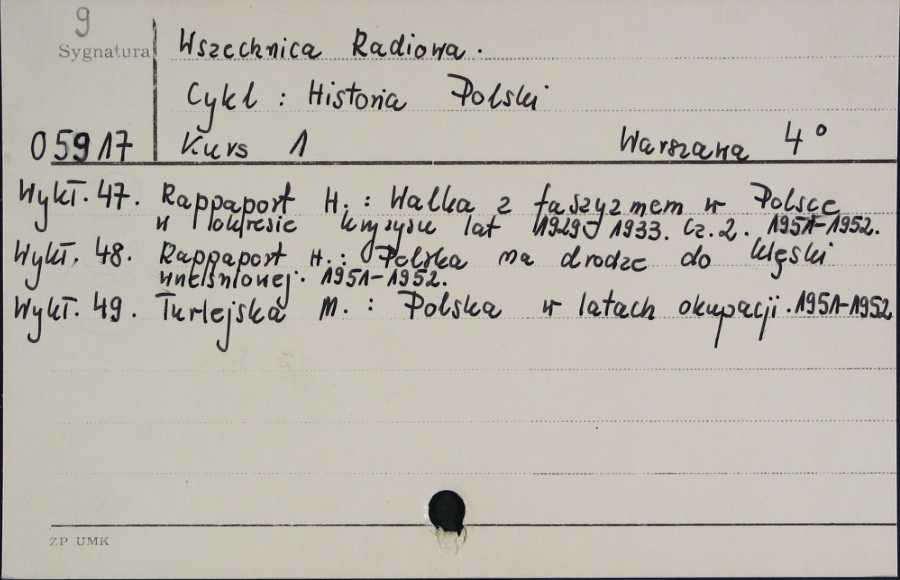 9
Sygnatura
Wszechnica Radiowa.
Cykl : Historia Polski
05917
Kurs 1 Warszawa 4°
Wykł. 47. Rappaport H. : Walka z faszyzmem w Polsce
w okresie kryzysu lat 1929-1933. Cz. 2. 1951-1952.
Wykł. 48. Rappaport H. : Polska na drodze do klęski
wrześniowej. 1951-1952.
Wykł. 49. Turlejska M. : Polska w latach okupacji. 1951-1952
ZP UMK